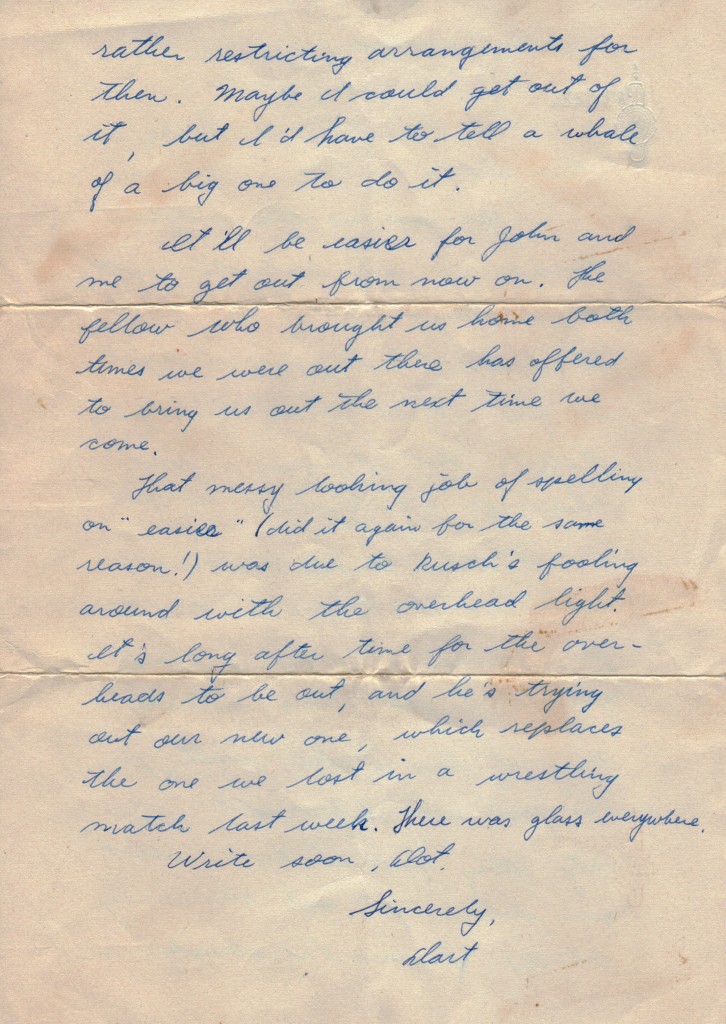 rather restricting arrangements for
then. Maybe I could get out of
it, but I'd have to tell a whale
of a big one to do it.
It'll be easier for John and
me to get out from now on. The
fellow who brought us home both
times we were out there has offered
to bring us out the next time we
come.
That messy looking job of spelling
on "easier" (did it again for the same
reason!) was due to Rusch's fooling
around with the overhead light.
It's long after time for the over-
heads to be out, and he's trying
out our new one, which replaces
the one we lost in a wrestling
match last week. There was glass everywhere.
Write soon, Dot.
Sincerely,
Dart